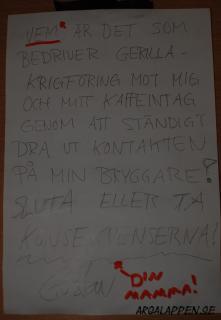 VEM* ÄR DET SOM
BEDRIVER GERILLA-
KRIGFÖRING MOT MIG
OCH MITT KAFFEINTAG
GENOM ATT STÄNDIGT
DRA UT KONTAKTEN
PÅ MIN BRYGGARE?
SLUTA ELLER TA
KONSEKVENSERNA!
DIN
MAMMA!
ARGALAPPEN.SE